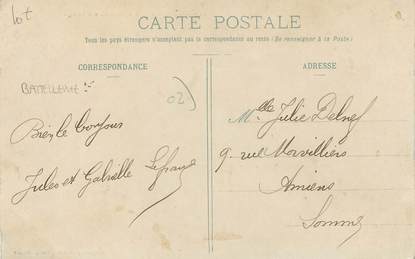 lot
CARTE POSTALE
Tous les pays étrangers n'acceptent pas la correspondance au recto (Se renseigner à la Poste)
CORRESPONDANCE
ADRESSE
BATELLERIE
02
Bien le bonjour
Jules et Gabrielle
Mlle Julie Delnef
9, rue Morvilliers
Amiens
Somme